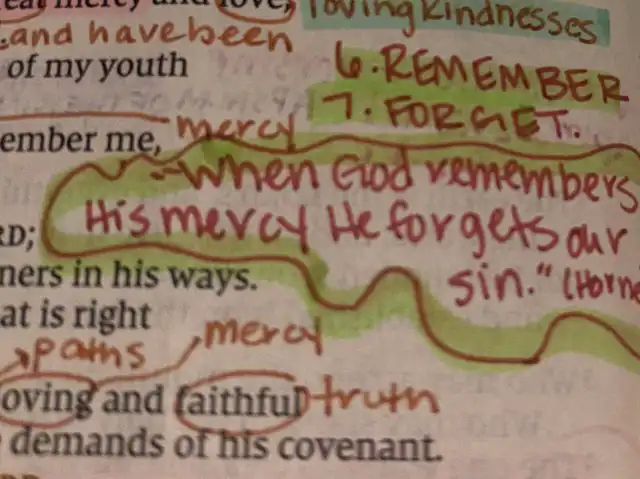 lovingkindnesses
and have been
of my youth
6. REMEMBER
7. FORGET.
me, mercy
"When God remembers
His mercy He forgets our
sin."
in his ways.
is right
paths mercy
and faithful truth
demands of his covenant.